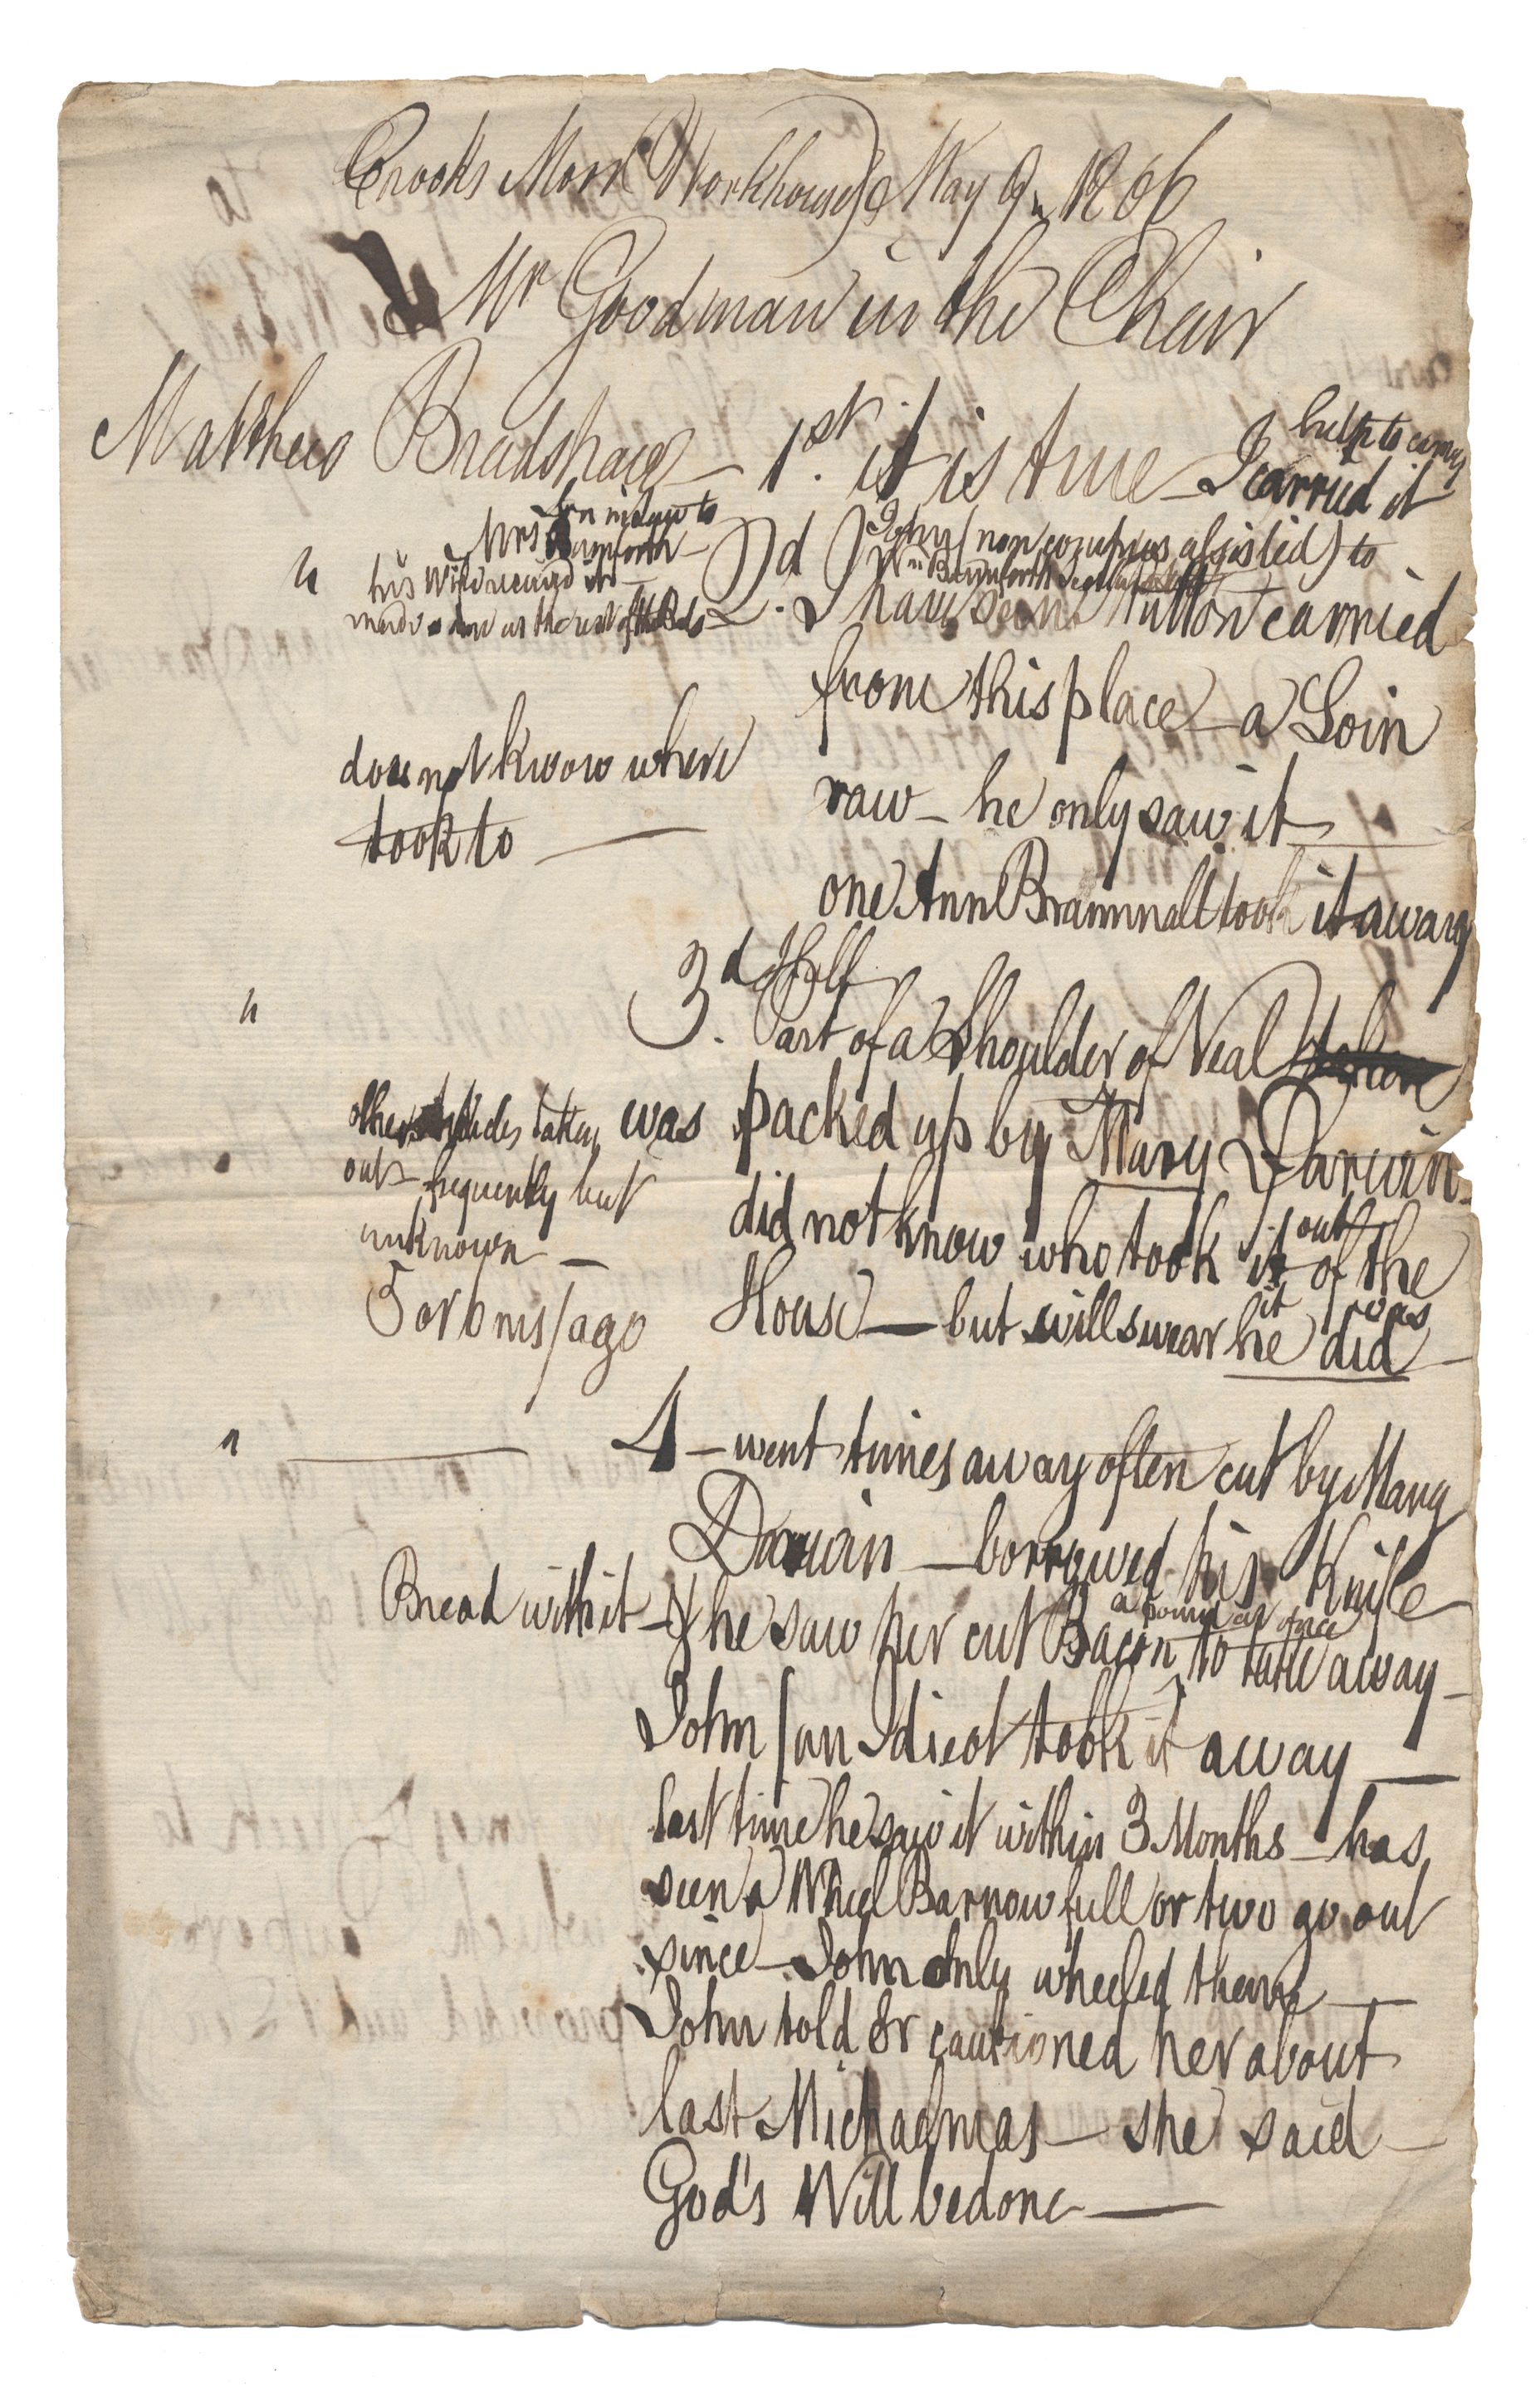 Crooks Moor Workhouse May 9th 1806
Mr Goodman in the Chair
Matthew Bradshaw — 1st. it is true — I carried it
help to carry
Son in law to
Mrs
" his Wife receiv'd it
made done as the rest of the Beds
2d. John (non compus assisted) to
I have seen Mutton carried
from this place — a Loin
does not know where
took to —
raw — he only saw it —
one Ann Brammall took it away
" 3d. Half
Part of a Shoulder of Veal
was packed up by Mary Darwin —
other Articles taken
out — frequently but
unknown —
5 or 6 ms/ago
did not know who took it out of the
House — but will swear he did —
it was
" — 4 — went times away often cut by Mary
Darwin — borrowed his Knife —
Bread with it — & he saw her cut Bacon to take away —
a pound at once
John /an Idieot took it away —
last time he saw it within 3 Months — has
seen a Wheel Barrow full or two go out
since — John only wheeled them —
John told & cautioned her about
last Michaelmas — she said —
God's Will be done —